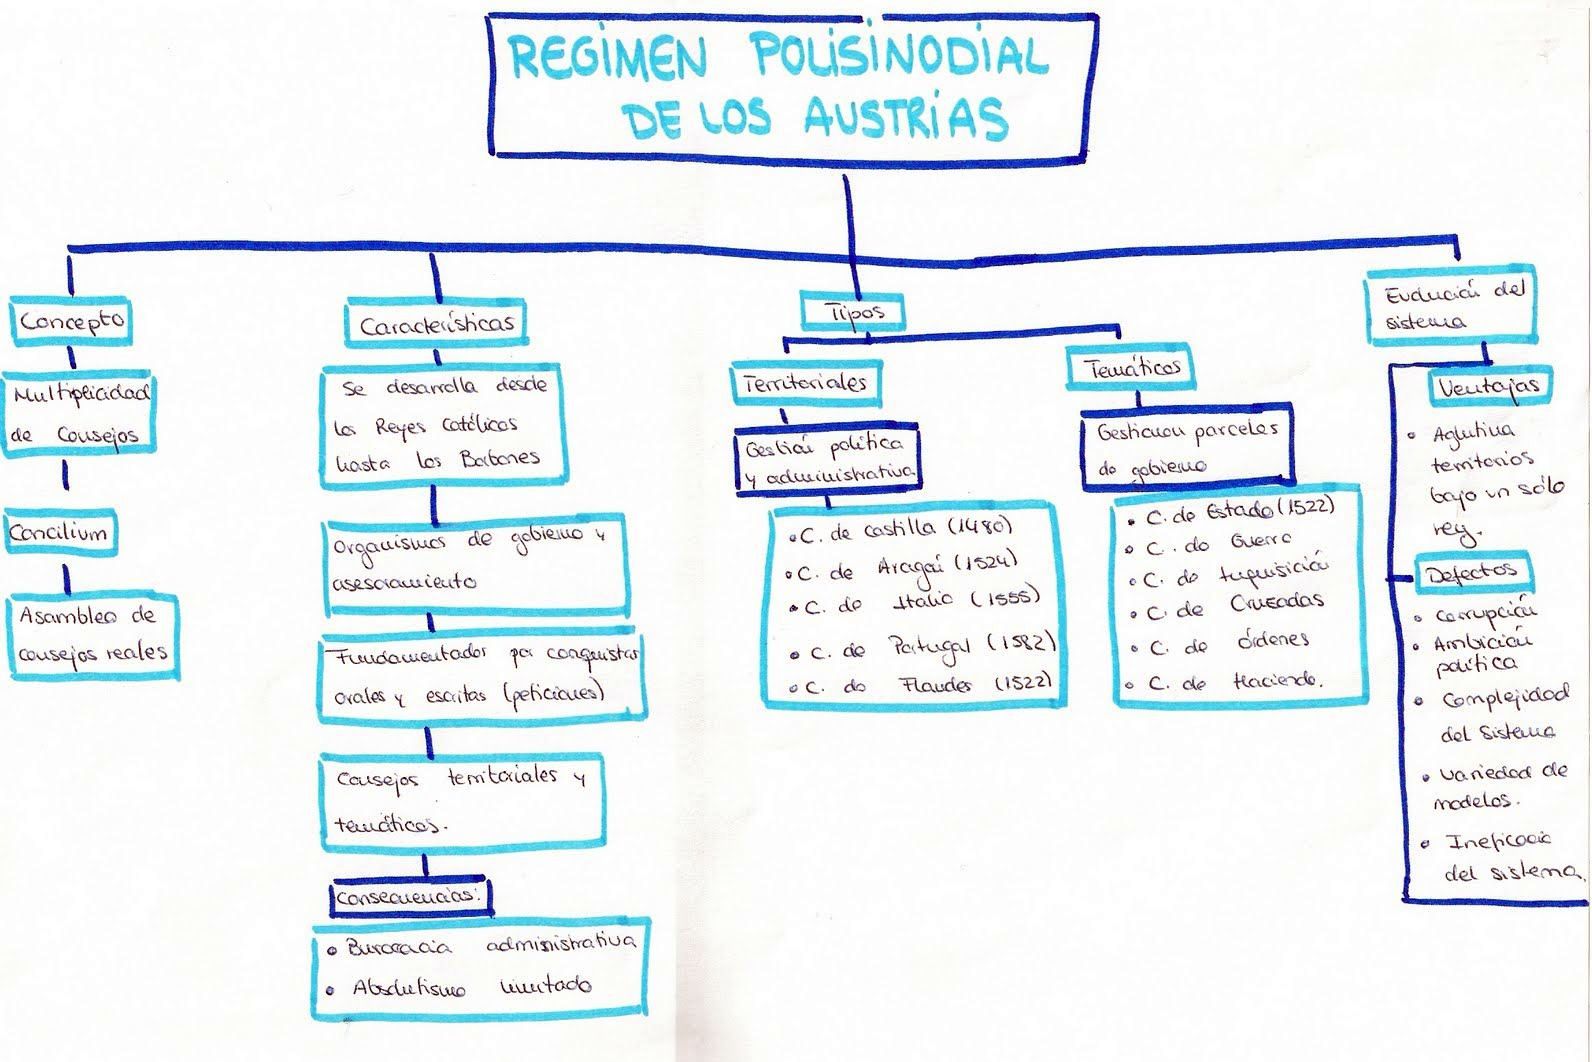 REGIMEN POLISINODIAL
DE LOS AUSTRIAS
Concepto
Multiplicidad
de Consejos
Concilium
Asamblea de
consejos reales
Características
Se desarrolla desde
los Reyes Católicos
hasta los Borbones
Organismos de gobierno y
asesoramiento
Fundamentados por conquistas
orales y escritas (peticiones)
Consejos territoriales y
temáticos.
Consecuencias:
• Burocracia administrativa
• Absolutismo limitado
Tipos
Territoriales
Gestión política
y administrativa
• C. de Castilla (1480)
• C. de Aragón (1524)
• C. de Italia (1555)
• C. de Portugal (1582)
• C. de Flandes (1522)
Temáticos
Gestionan parcelas
de gobierno
• C. de Estado (1522)
• C. de Guerra
• C. de Inquisición
• C. de Cruzadas
• C. de órdenes
• C. de Hacienda.
Evolución del
sistema
Ventajas
• Aglutina
territorios
bajo un sólo
rey.
Defectos
• Corrupción
• Ambición
política
• Complejidad
del Sistema
• Variedad de
modelos.
• Ineficacia
del sistema.